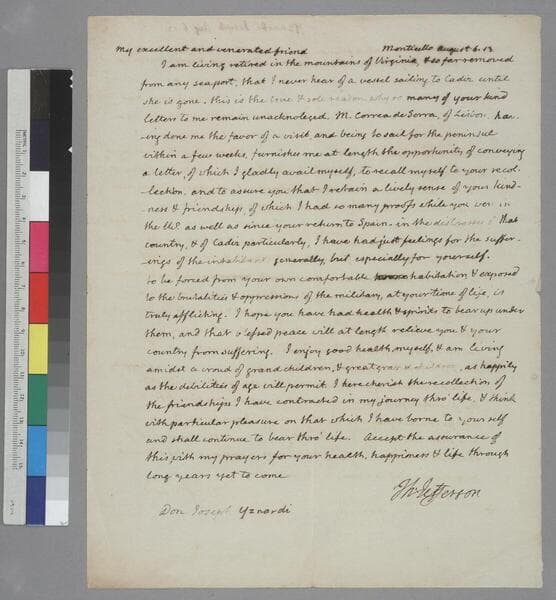 My excellent and venerated friend Monticello August 6. 13
I am living retired in the mountains of Virginia, & so far removed
from any seaport, that I never hear of a vessel sailing to Cadiz until
she is gone. this is the true & sole reason why so many of your kind
letters to me remain unacknoleged. M. Correa de Serra, of Lisbon, hav-
-ing done me the favor of a visit, and being to sail for the peninsul
within a few weeks, furnishes me at length the opportunity of conveying
a letter, of which I gladly avail myself, to recall myself to your recol
-lection, and to assure you that I retain a lively sense of your kind-
-ness & friendship, of which I had so many proofs while you were in
the US. as well as since your return to Spain. in the distresses of that
country, & of Cadiz particularly, I have had just feelings for the suffer-
-ings of the inhabitants generally, but especially for yourself.
to be forced from your own comfortable habitation, & exposed
to the brutalities & oppressions of the military, at your time of life, is
truly afflicting. I hope you have had health & spirits to bear up under
them, and that blessed peace will at length relieve you & your
country from suffering. I enjoy good health myself, & am living
amidst a croud of grandchildren, & great grand children, as happily
as the debilities of age will permit. I here cherish the recollection of
the friendships I have contracted in my journey thro' life, & think
with particular pleasure on that which I have borne to yourself
and shall continue to bear thro' life. Accept the assurance of
this with my prayers for your health, happiness & life through
long years yet to come
Th: Jefferson
Don Joseph Yznardi